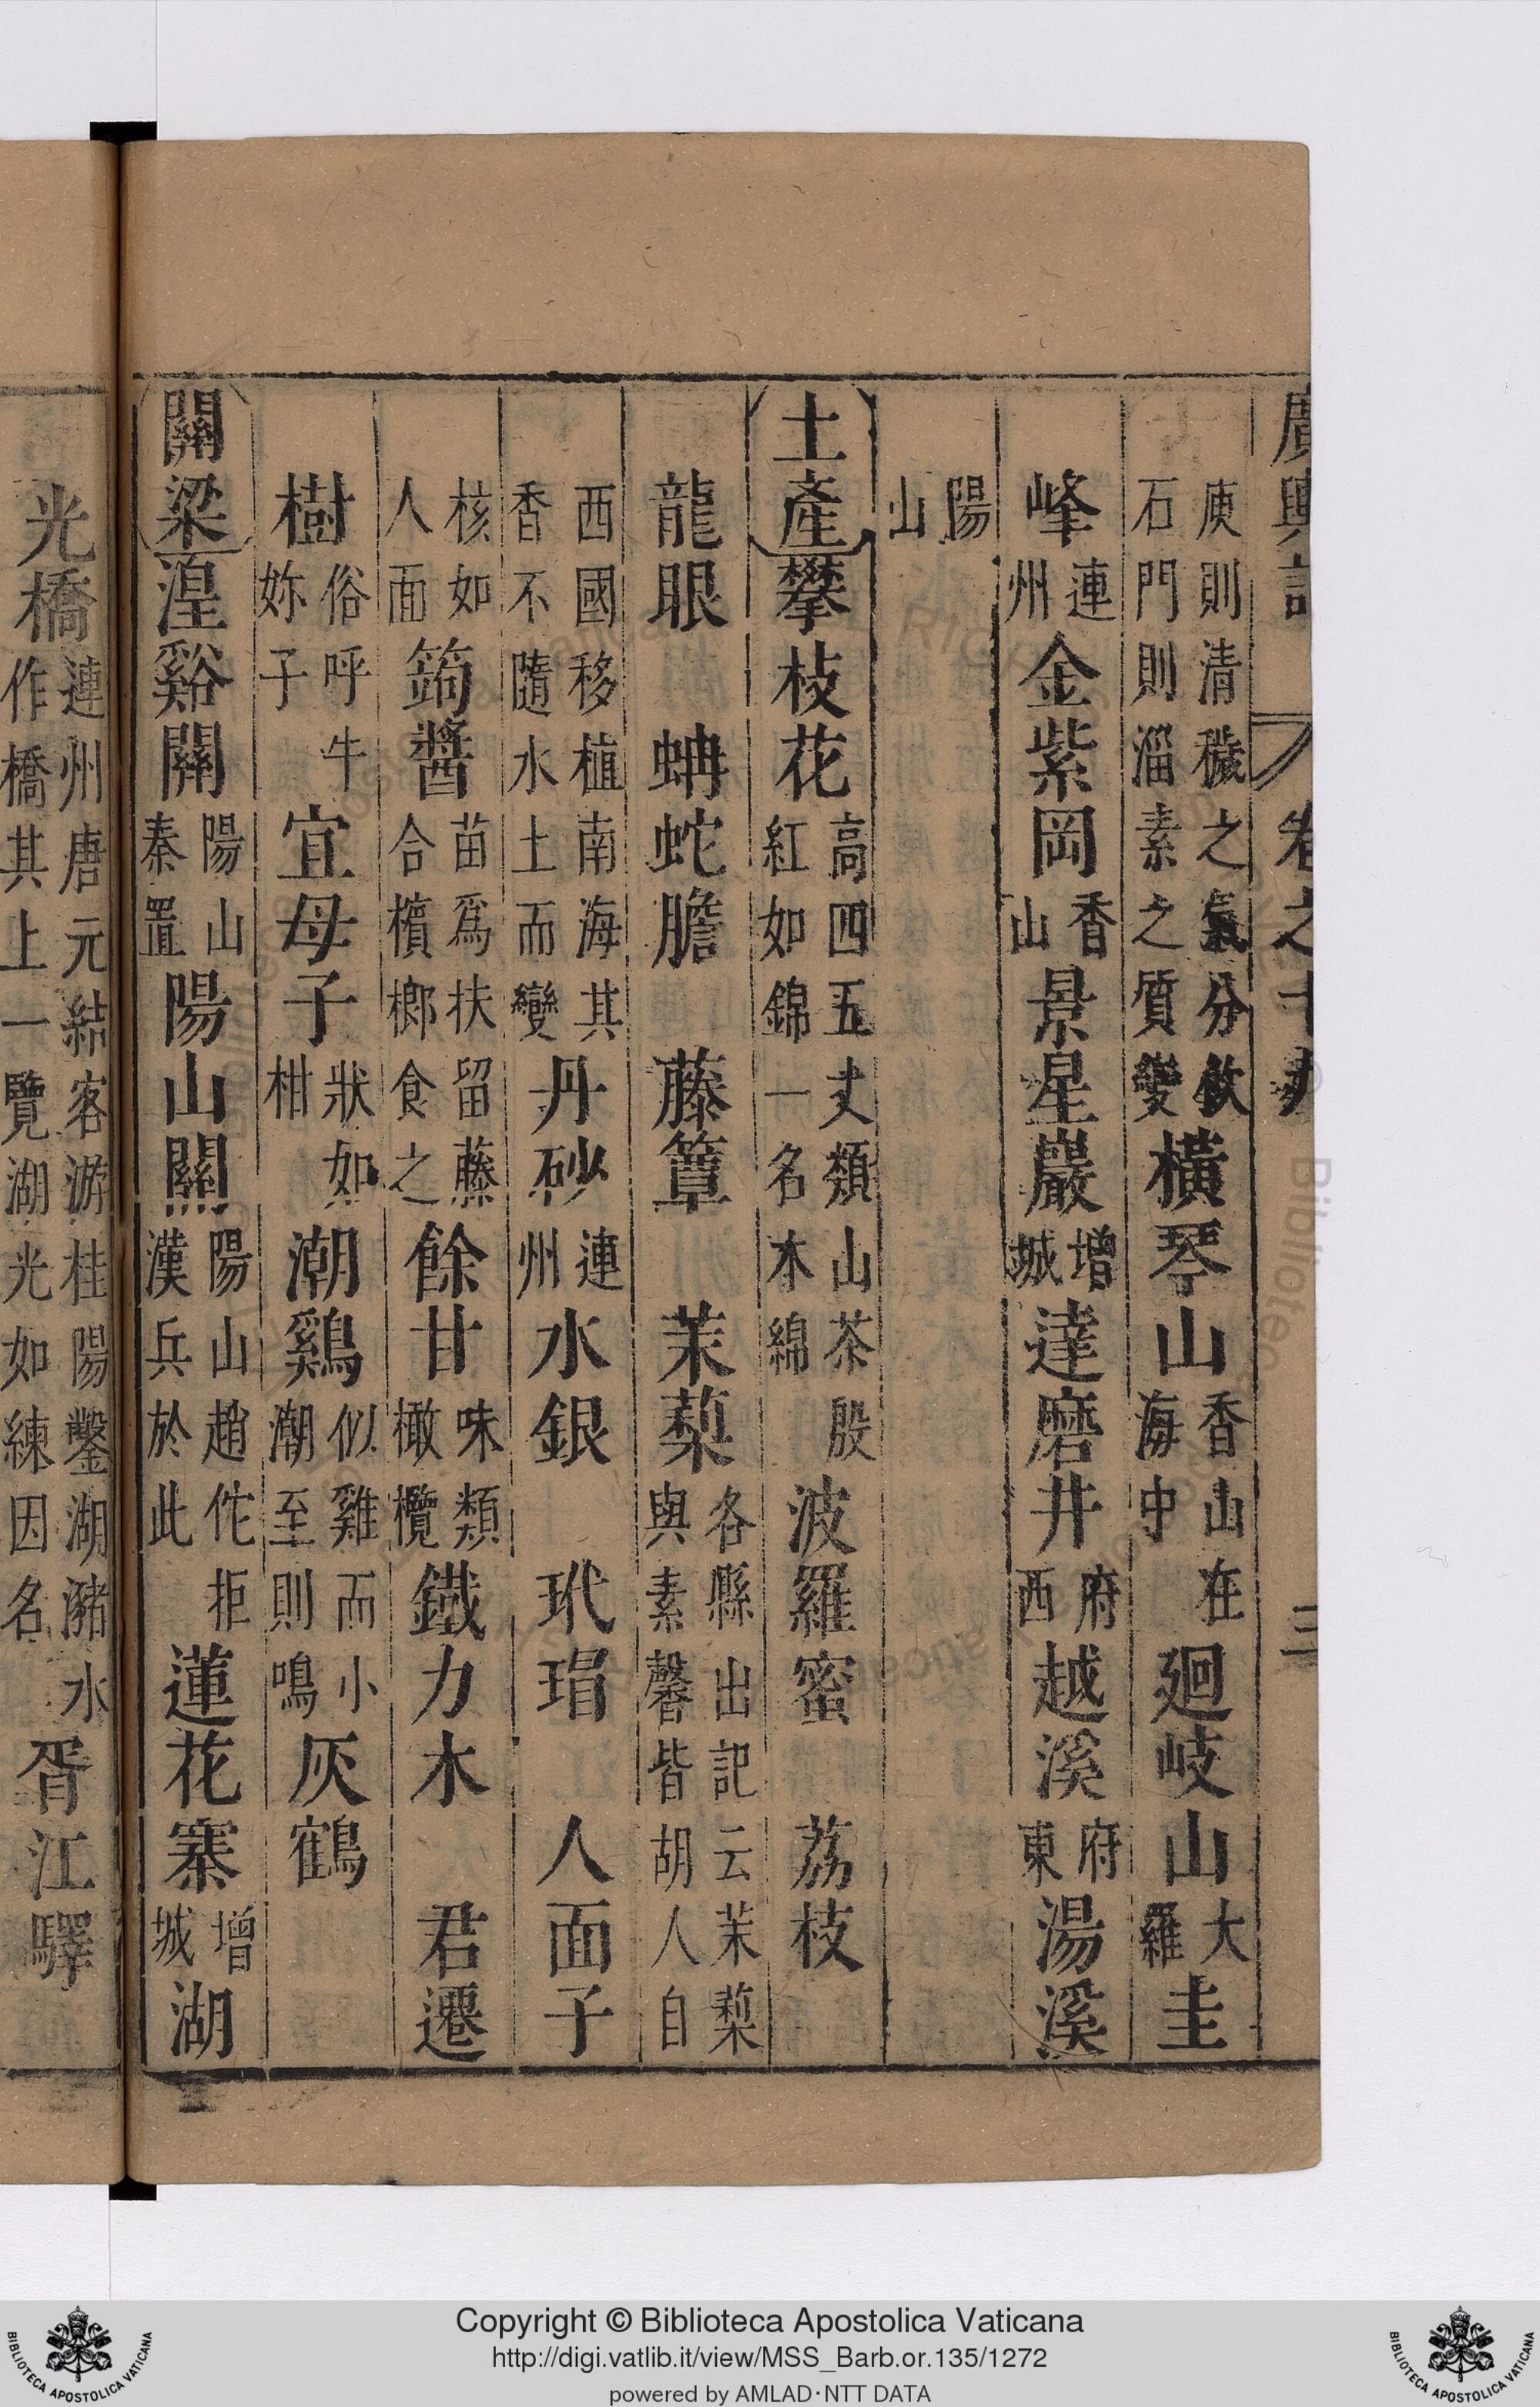 廣輿記 卷之十九 三
庾則清穢之氣分飲
石門則淄素之質變橫琴山香山在
海中廻岐山大
羅圭
峰連
州金紫岡香
山景星巖增
城達磨井府
西越溪府
東湯溪
陽
山
土產攀枝花高四五丈類山茶殷
紅如錦一名木綿波羅蜜 荔枝
龍眼 蚺蛇膽 藤簟 茉蔾各縣出記云茉蔾
與素馨皆胡人自
西國移植南海其
香不隨水土而變丹砂連
州水銀 玳瑁 人面子
核如
人面蒟醬苗爲扶留藤
合檳榔食之餘甘味類
橄欖鐵力木 君遷
樹俗呼牛
妳子宜母子狀如
柑潮鷄似雞而小
潮至則鳴灰鶴
關梁湟谿關陽山
秦置陽山關陽山趙佗拒
漢兵於此蓮花寨增
城湖
光橋連州唐元結客游桂陽鑿湖瀦水
作橋其上一覽湖光如練因名胥江驛
Copyright © Biblioteca Apostolica Vaticana
http://digi.vatlib.it/view/MSS_Barb.or.135/1272
powered by AMLAD·NTT DATA
BIBLIOTECA APOSTOLICA VATICANA
BIBLIOTECA APOSTOLICA VATICANA